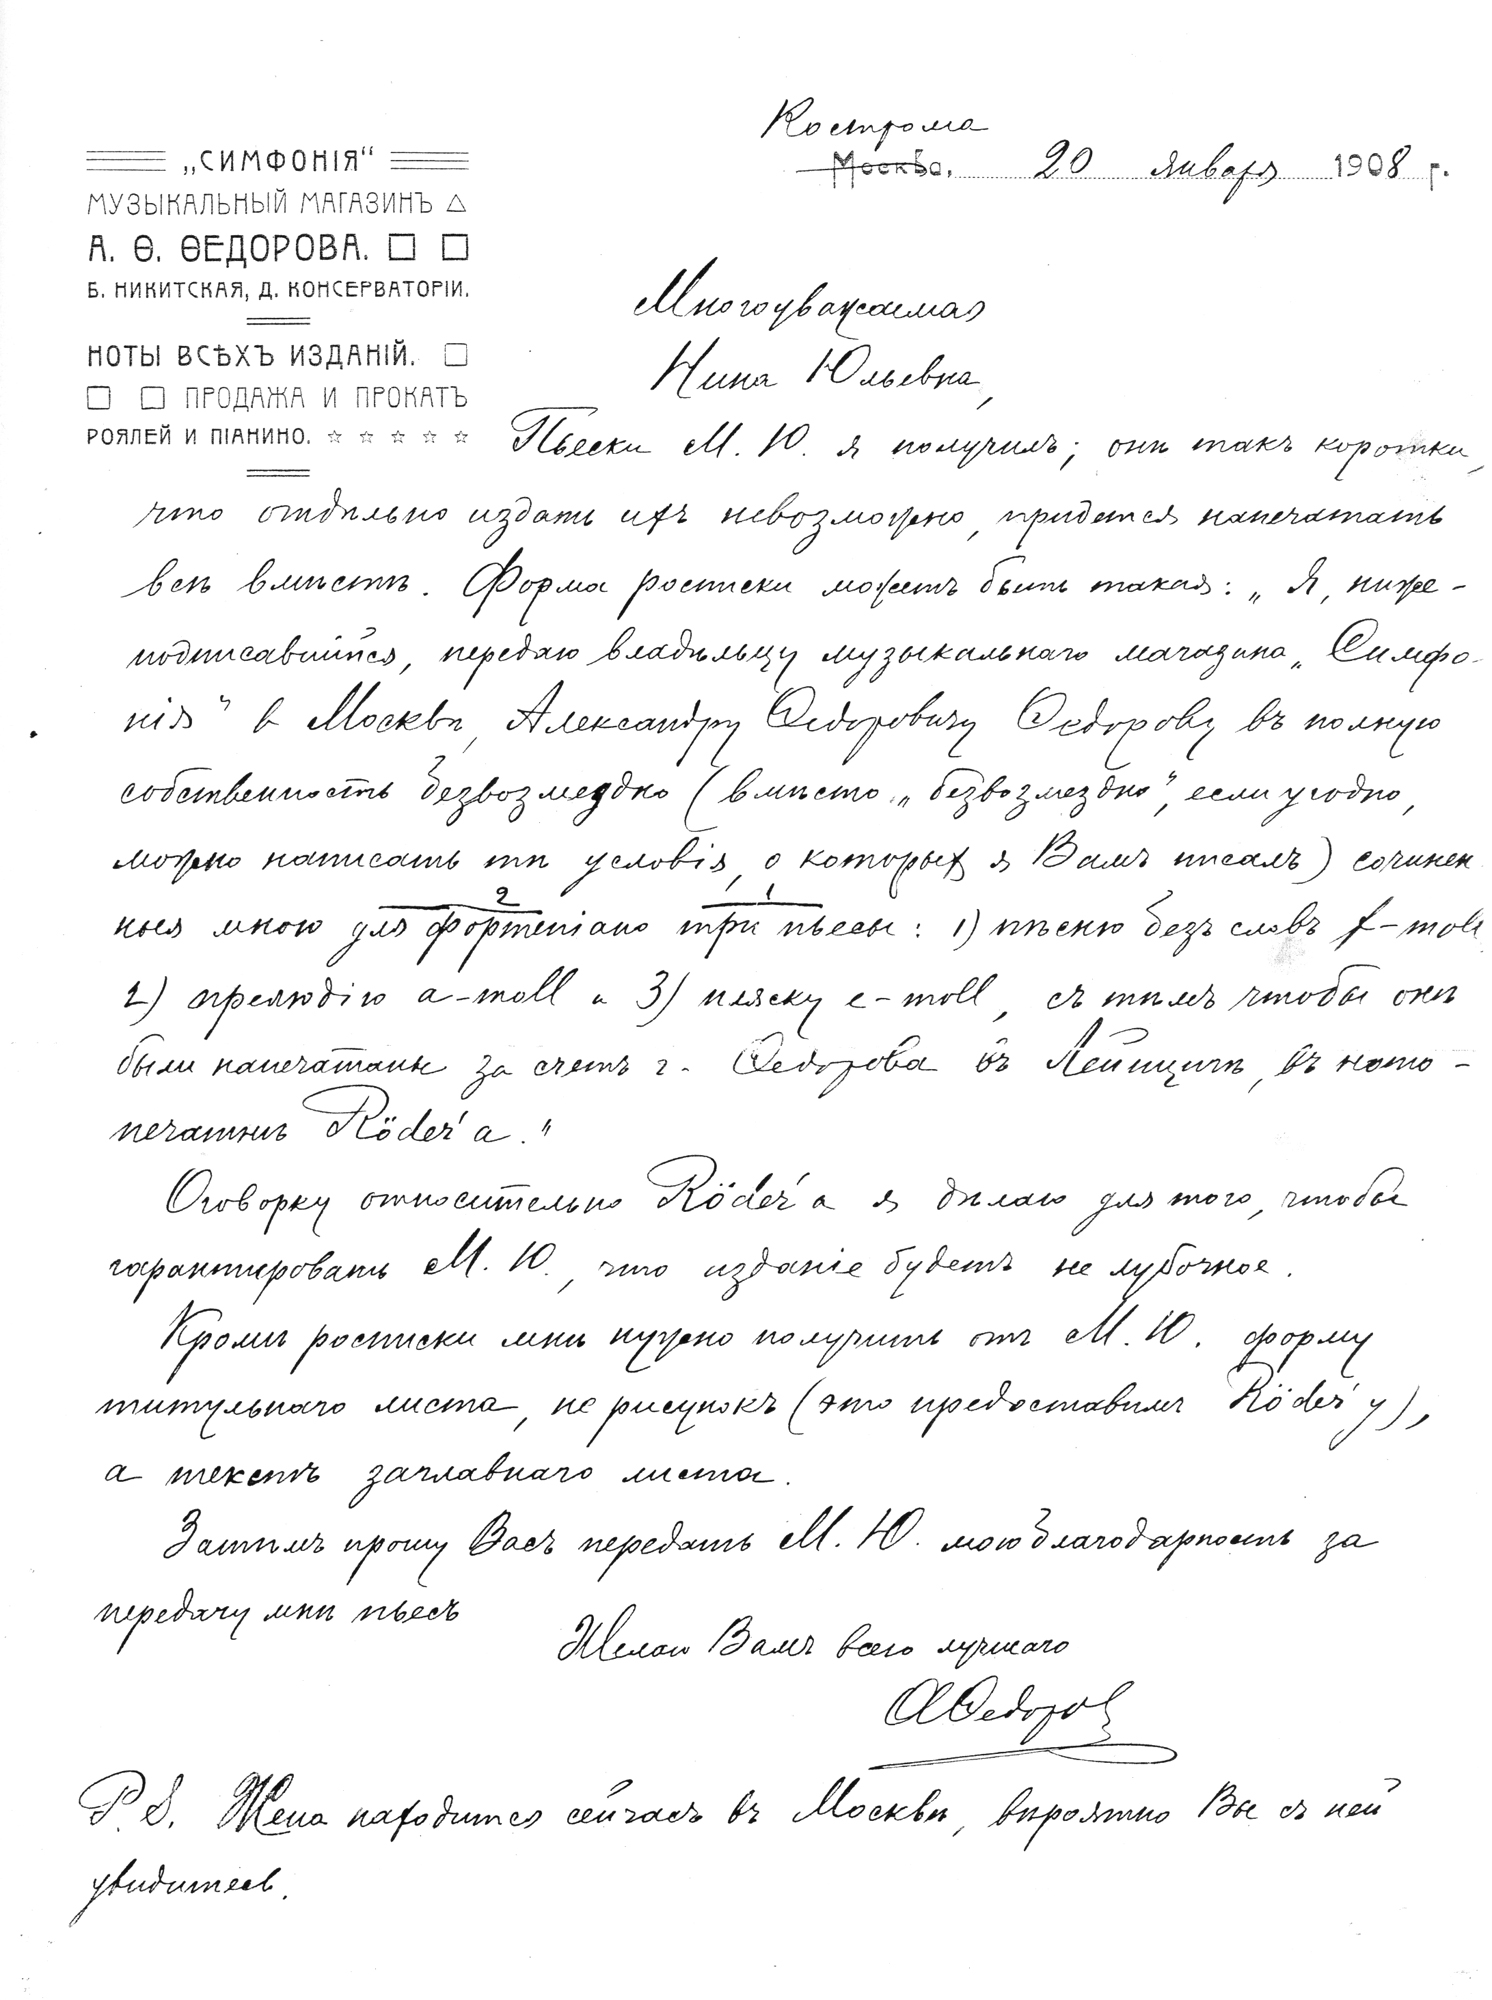 Кострома
Москва, 20 января 1908 г.
„СИМФОНІЯ“
МУЗЫКАЛЬНЫЙ МАГАЗИНЪ
А. Ѳ. ѲЕДОРОВА.
Б. НИКИТСКАЯ, Д. КОНСЕРВАТОРІИ.
НОТЫ ВСѢХЪ ИЗДАНІЙ.
ПРОДАЖА И ПРОКАТЪ
РОЯЛЕЙ И ПІАНИНО.
Многоуважаемая
Нина Юльевна,
Пьески М. Ю. я получилъ; онѣ такъ коротки,
что отдѣльно издать ихъ невозможно, придется напечатать
всѣ вмѣстѣ. Форма росписки можетъ быть такая: „Я, ниже-
подписавшійся, передаю владѣльцу музыкальнаго магазина „Симфо-
нія“ в Москвѣ, Александру Ѳедоровичу Ѳедорову въ полную
собственность безвозмездно (вмѣсто „безвозмездно“, если угодно,
можно написать тѣ условія, о которых я Вамъ писалъ) сочинен
2 1
ныя мною для фортепіано три пьесы: 1) пѣсню безъ словъ f-moll
2) прелюдію a-moll и 3) пляску e-moll, съ тѣмъ чтобы онѣ
были напечатаны за счетъ г. Ѳедорова въ Лейпцигѣ, въ ното-
печатнѣ Röder'а."
Оговорку относительно Röder'а я дѣлаю для того, чтобы
гарантировать М. Ю., что изданіе будетъ не лубочное.
Кромѣ росписки мнѣ нужно получить отъ М. Ю. форму
титульнаго листа, не рисунокъ (это предоставимъ Röder'у),
а текстъ заглавнаго листа.
Затѣмъ прошу Васъ передать М. Ю. мою благодарность за
передачу мнѣ пьесъ
Желаю Вамъ всего лучшаго
АѲедоров
P. S. Жена находится сейчасъ въ Москвѣ, вѣроятно Вы съ ней
увидитесь.